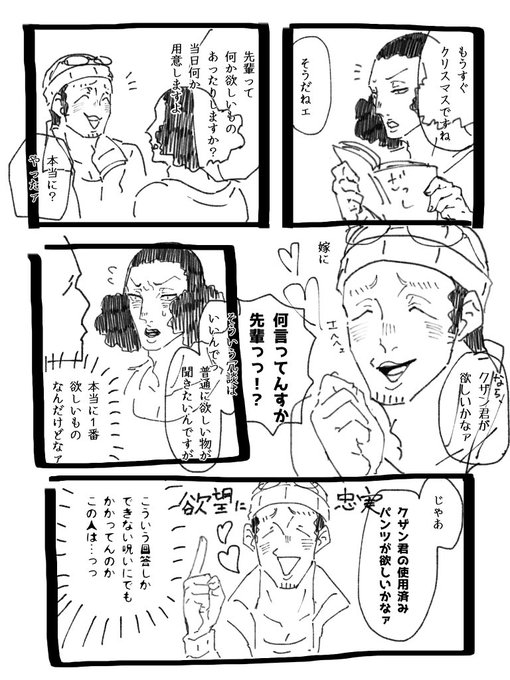 もうすぐ
クリスマスですね
そうだねェ
ざっし
先輩って
何か欲しいもの
あったりしますか?
当日何か
用意しますよ
本当に?
やったァ
なら、
クザン君が
欲しいかなァ
嫁に
エヘヘ
何言ってんすか
先輩っっ!?
そういう冗談は
いいんでっ
普通に欲しい物が
聞きたいんですが
本当に1番
欲しいもの
なんだけどなァ
じゃあ
クザン君の使用済み
パンツが欲しいかなァ
欲望に忠実
こういう回答しか
できない呪いにでも
かかってんのか
この人は…っっ